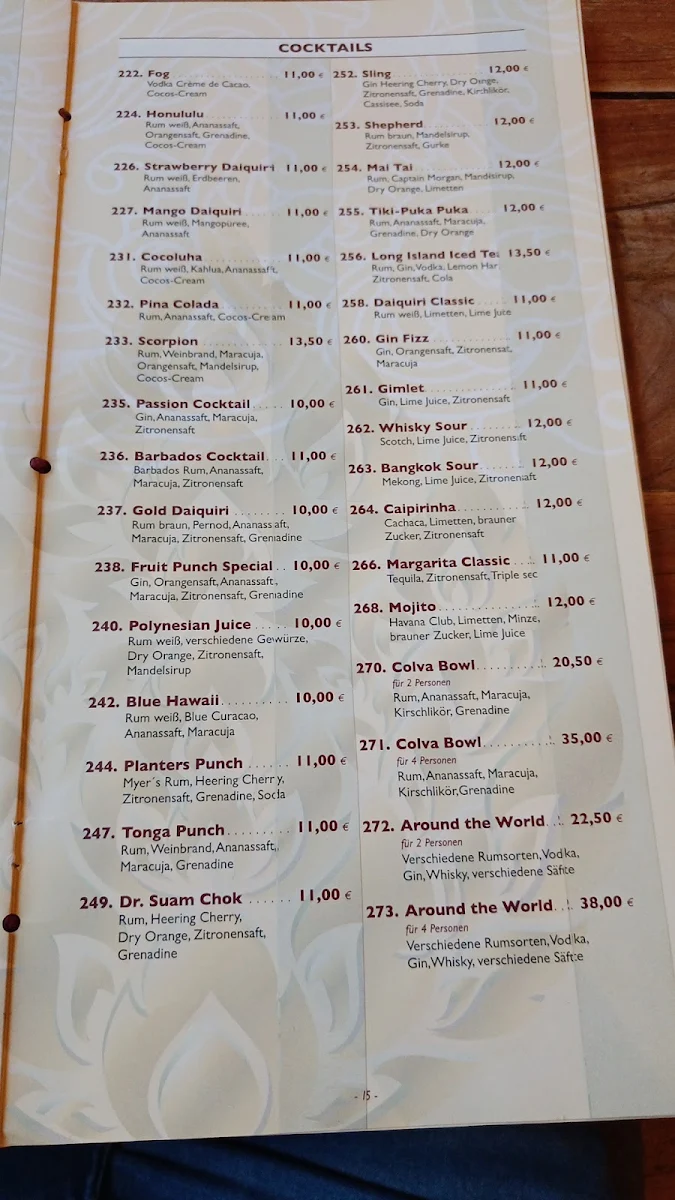 COCKTAILS
222. Fog 11,00 €
Vodka Crème de Cacao,
Cocos-Cream
224. Honululu 11,00 €
Rum weiß, Ananassaft,
Orangensaft, Grenadine,
Cocos-Cream
226. Strawberry Daiquiri 11,00 €
Rum weiß, Erdbeeren,
Ananassaft
227. Mango Daiquiri 11,00 €
Rum weiß, Mangopuree,
Ananassaft
231. Cocoluha 11,00 €
Rum weiß, Kahlua, Ananassaft,
Cocos-Cream
232. Pina Colada 11,00 €
Rum, Ananassaft, Cocos-Cream
233. Scorpion 13,50 €
Rum, Weinbrand, Maracuja,
Orangensaft, Mandelsirup,
Cocos-Cream
235. Passion Cocktail..... 10,00 €
Gin, Ananassaft, Maracuja,
Zitronensaft
236. Barbados Cocktail.... 11,00 €
Barbados Rum, Ananassaft,
Maracuja, Zitronensaft
237. Gold Daiquiri ........ 10,00 €
Rum braun, Pernod, Ananassaft,
Maracuja, Zitronensaft, Grenadine
238. Fruit Punch Special.. 10,00 €
Gin, Orangensaft, Ananassaft,
Maracuja, Zitronensaft, Grenadine
240. Polynesian Juice ..... 10,00 €
Rum weiß, verschiedene Gewürze,
Dry Orange, Zitronensaft,
Mandelsirup
242. Blue Hawaii.......... 10,00 €
Rum weiß, Blue Curacao,
Ananassaft, Maracuja
244. Planters Punch ...... 11,00 €
Myer´s Rum, Heering Cherry,
Zitronensaft, Grenadine, Soda
247. Tonga Punch......... 11,00 €
Rum, Weinbrand, Ananassaft,
Maracuja, Grenadine
249. Dr. Suam Chok ...... 11,00 €
Rum, Heering Cherry,
Dry Orange, Zitronensaft,
Grenadine
252. Sling 12,00 €
Gin Heering Cherry, Dry Orange,
Zitronensaft, Grenadine, Kirchlikör,
Cassisee, Soda
253. Shepherd 12,00 €
Rum braun, Mandelsirup,
Zitronensaft, Gurke
254. Mai Tai 12,00 €
Rum, Captain Morgan, Mandlsirup,
Dry Orange, Limetten
255. Tiki-Puka Puka 12,00 €
Rum, Ananassaft, Maracuja,
Grenadine, Dry Orange
256. Long Island Iced Tea 13,50 €
Rum, Gin, Vodka, Lemon Hart
Zitronensaft, Cola
258. Daiquiri Classic 11,00 €
Rum weiß, Limetten, Lime Juice
260. Gin Fizz 11,00 €
Gin, Orangensaft, Zitronensaft,
Maracuja
261. Gimlet 11,00 €
Gin, Lime Juice, Zitronensaft
262. Whisky Sour 12,00 €
Scotch, Lime Juice, Zitronensaft
263. Bangkok Sour 12,00 €
Mekong, Lime Juice, Zitronensaft
264. Caipirinha 12,00 €
Cachaca, Limetten, brauner
Zucker, Zitronensaft
266. Margarita Classic 11,00 €
Tequila, Zitronensaft, Triple sec
268. Mojito 12,00 €
Havana Club, Limetten, Minze,
brauner Zucker, Lime Juice
270. Colva Bowl 20,50 €
für 2 Personen
Rum, Ananassaft, Maracuja,
Kirschlikör, Grenadine
271. Colva Bowl 35,00 €
für 4 Personen
Rum, Ananassaft, Maracuja,
Kirschlikör, Grenadine
272. Around the World 22,50 €
für 2 Personen
Verschiedene Rumsorten, Vodka,
Gin, Whisky, verschiedene Säfte
273. Around the World 38,00 €
für 4 Personen
Verschiedene Rumsorten, Vodka,
Gin, Whisky, verschiedene Säfte
- 15 -